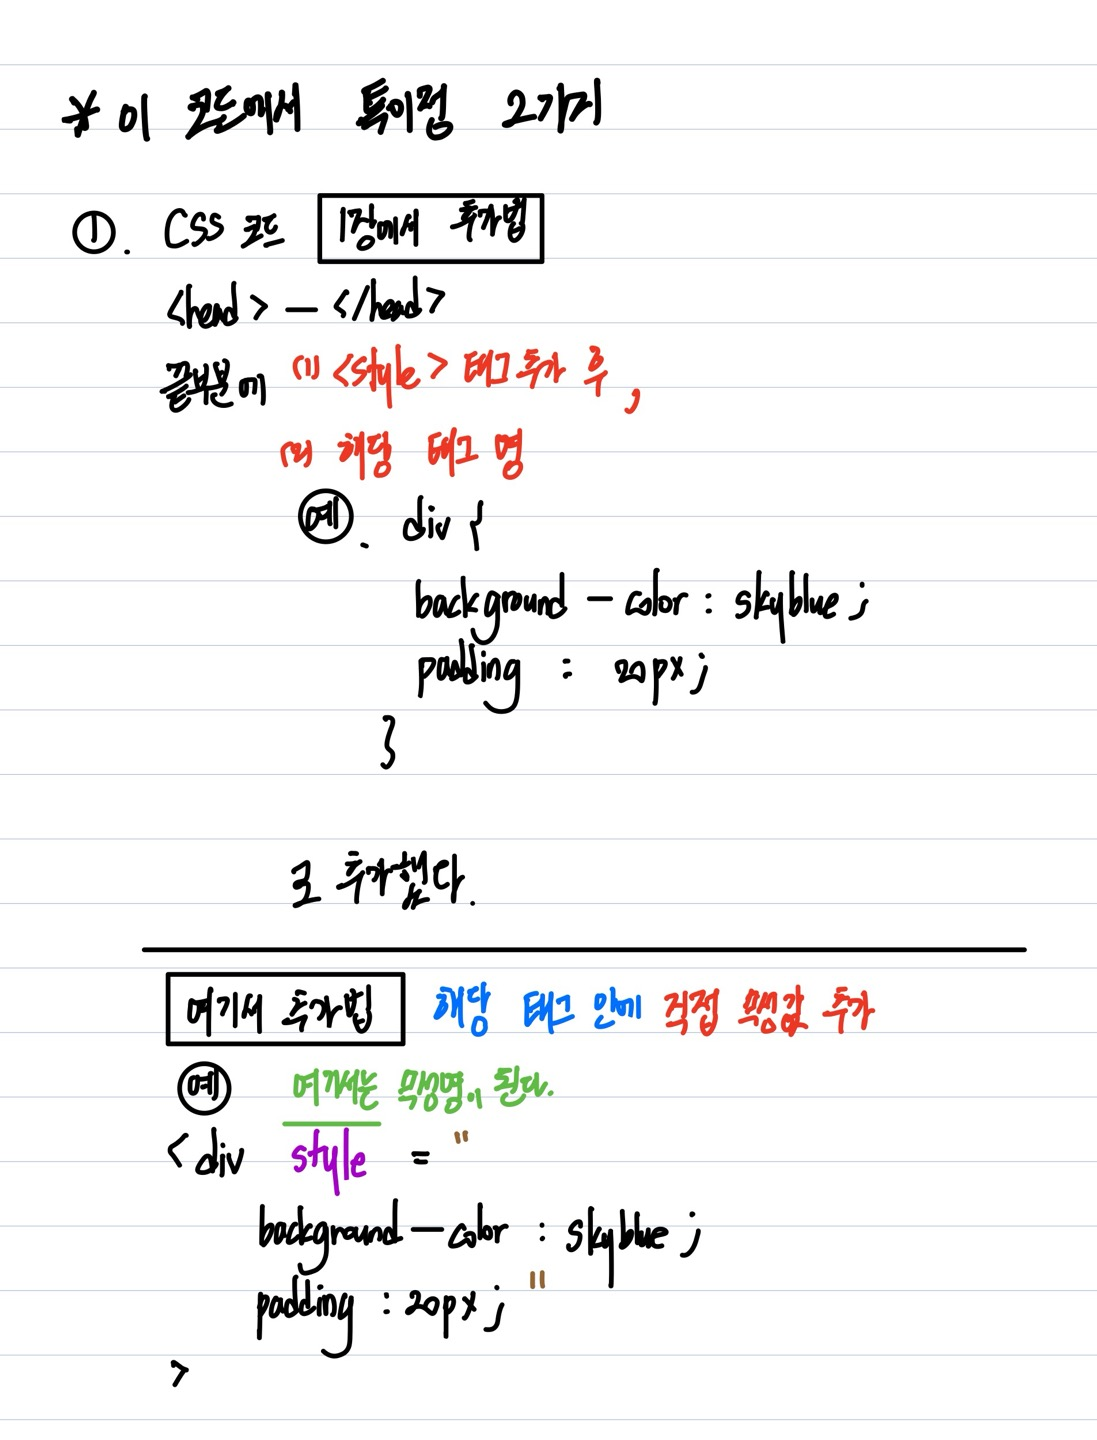 * 이 코드에서 특이점 2가지
①. CSS 코드 1장에서 추가법
<head> - </head>
끝부분에 (1) <style> 태그 추가 후,
(2) 해당 태그 명
예. div {
background - color : skyblue ;
padding : 20px ;
}
로 추가했다.
여기서 추가법 해당 태그 안에 직접 속성값 추가
예 여기서는 속성명이 된다.
<div style = "
background - color : skyblue ;
padding : 20px ; "
>